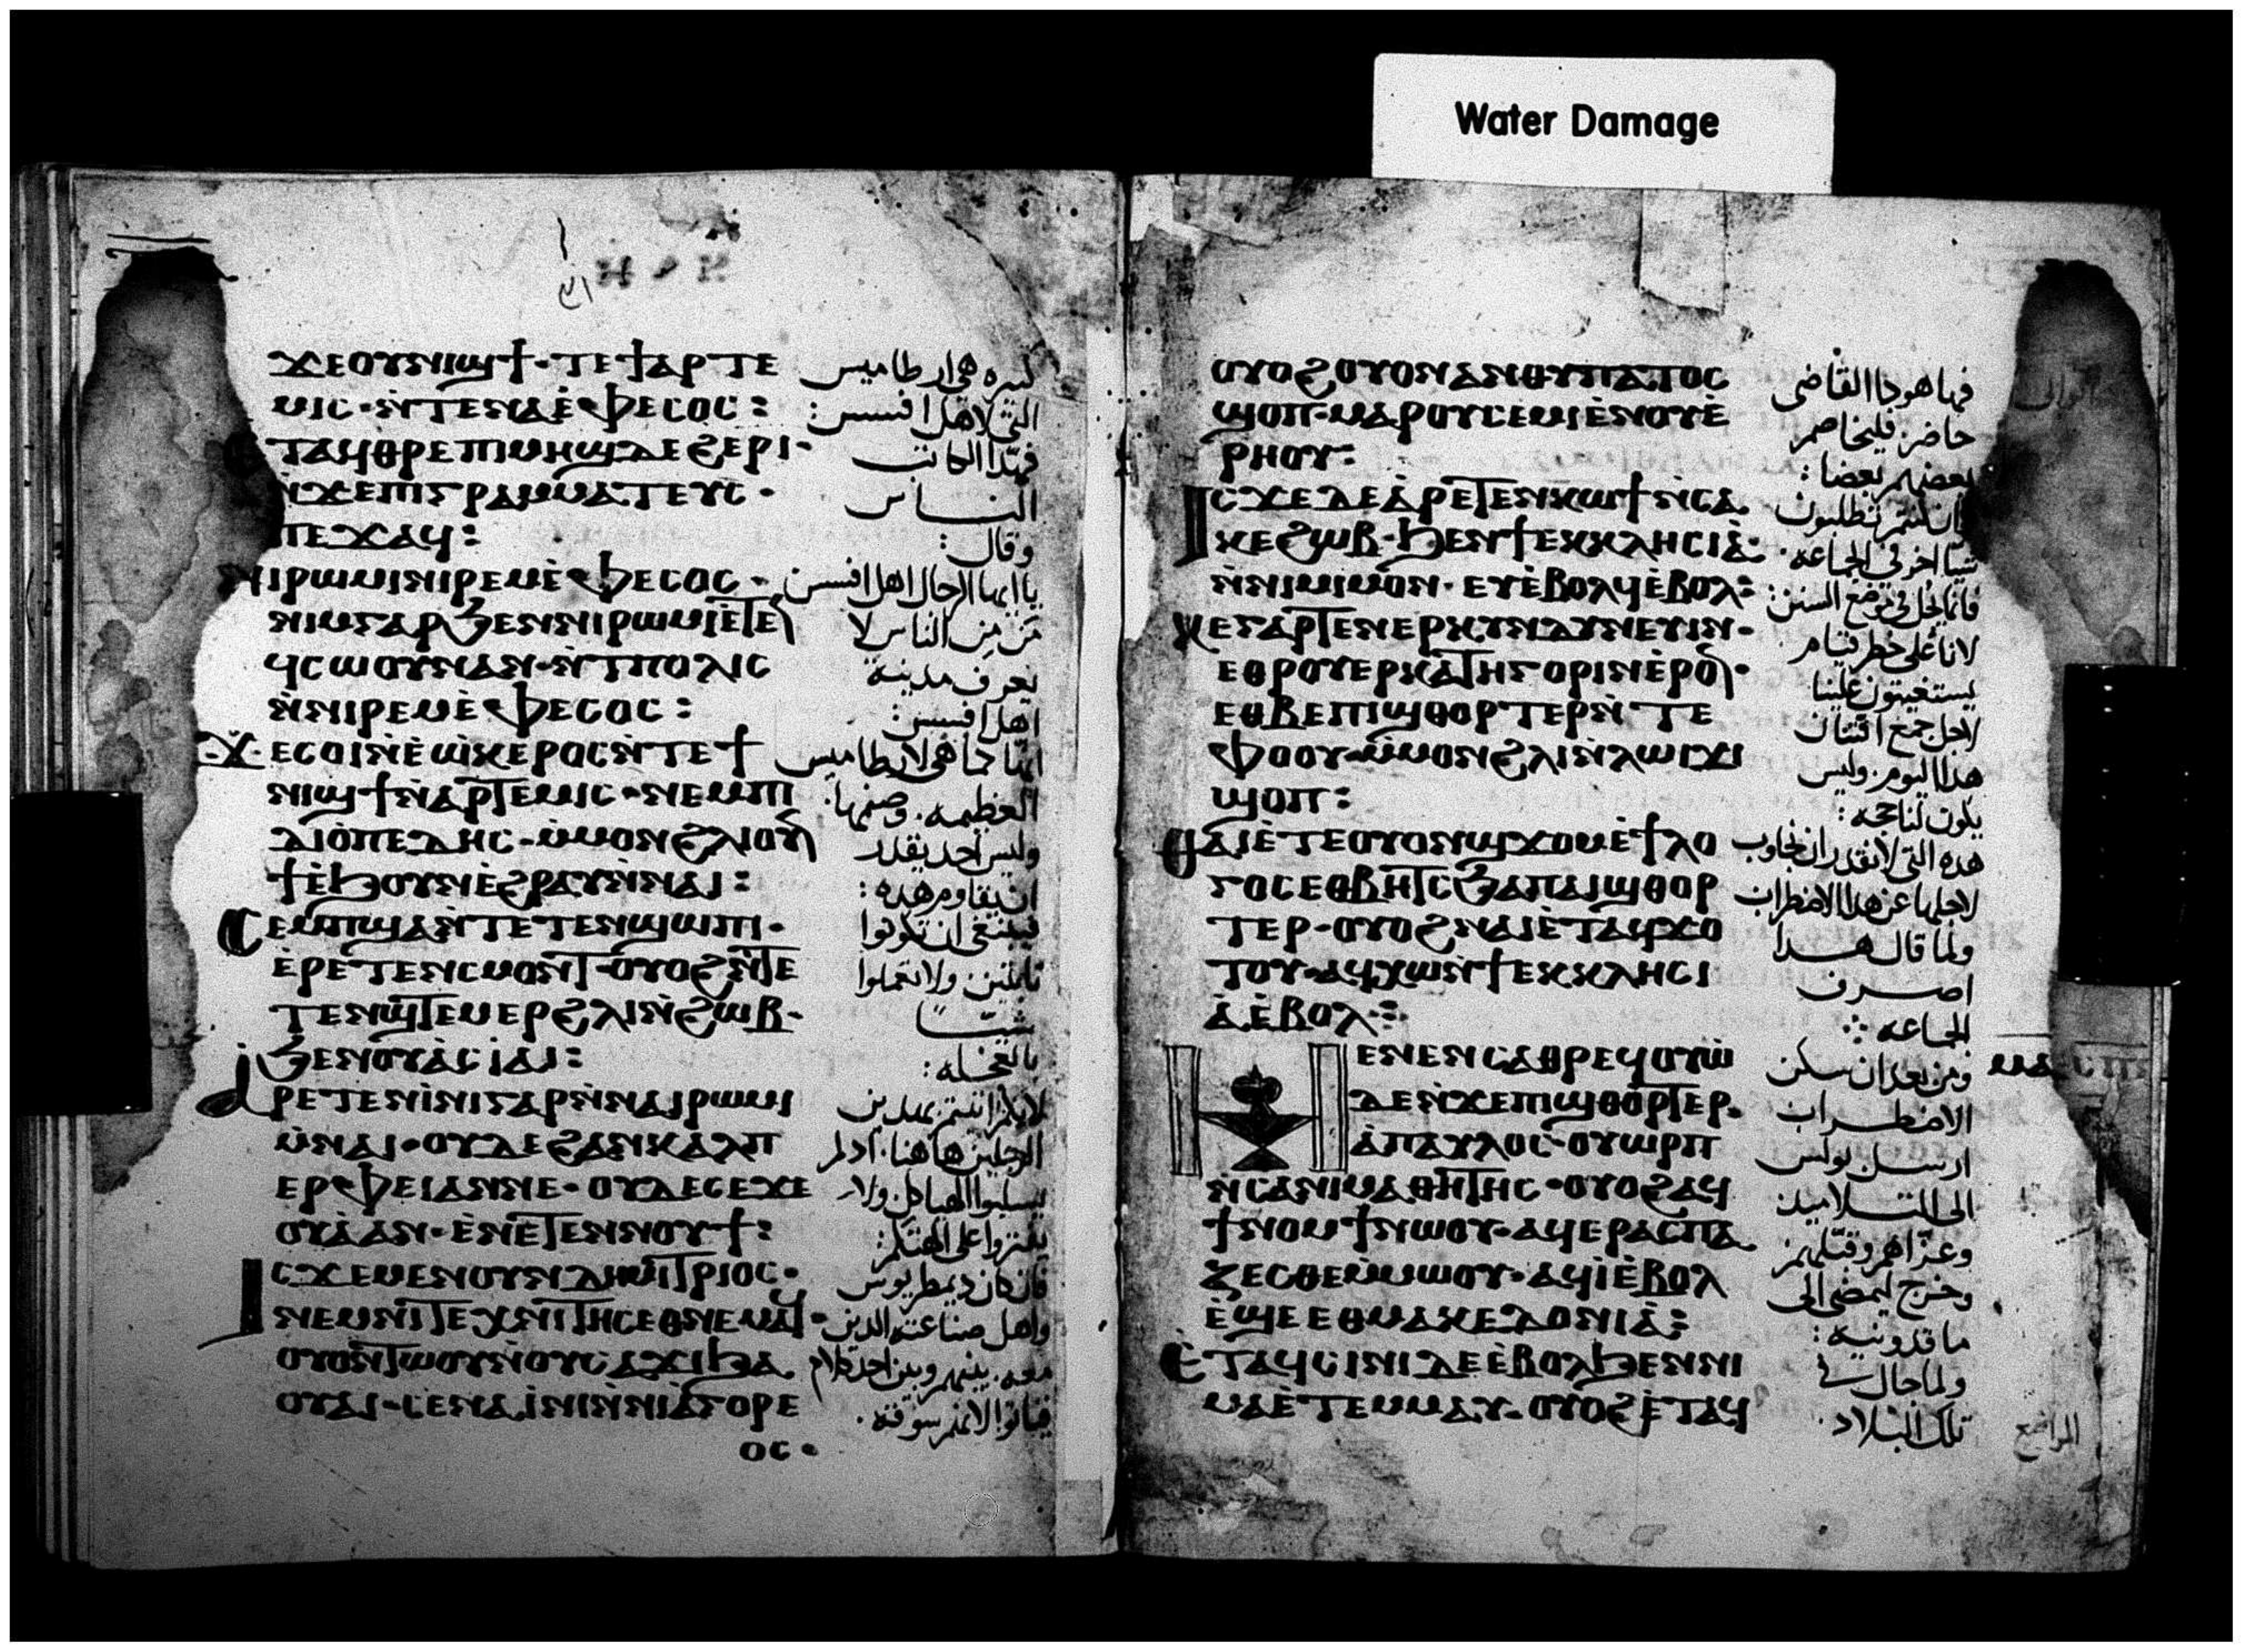 Water Damage
ϫⲉⲟⲩⲛⲓϣϯ· ⲧⲉ ϯⲁⲣⲧⲉ
ⲙⲓⲥ· ⲛ̀ⲧⲉⲛⲁⲉ̀ⲫⲉⲥⲟⲥ:
ⲉⲧⲁϥⲑⲣⲉⲡⲓⲙⲏϣⲇⲉϩⲉⲣⲓ·
ⲛ̀ϫⲉⲡⲓⲅⲣⲁⲙⲙⲁⲧⲉⲩⲥ·
ⲡⲉϫⲁϥ:
ⲛⲓⲣⲱⲙⲓⲛⲓⲣⲉⲙⲉ̀ⲫⲉⲥⲟⲥ·
ⲛⲓⲙⲅⲁⲣϧⲉⲛⲛⲓⲣⲱⲙⲓⲉ̀ⲧⲉⲛ
ϥⲥⲱⲟⲩⲛⲁⲛ· ⲛ̀ⲧⲡⲟⲗⲓⲥ
ⲛ̀ⲛⲓⲣⲉⲙⲉ̀ⲫⲉⲥⲟⲥ:
ϫⲉⲥⲟⲓⲛ̀ⲉⲱ̀ⲕⲉⲣⲟⲥⲛ̀ⲧⲉϯ
ⲛⲓϣϯⲛ̀ⲁⲣⲧⲉⲙⲓⲥ· ⲛⲉⲙⲡⲓ
ⲇⲓⲟ̀ⲡⲉⲇⲏⲥ· ⲙ̀ⲙⲟⲛϩⲗⲓⲟⲩⲛ
ϯⲉ̀ϧⲟⲩⲛⲉ̀ϩⲣⲁⲩⲛ̀ⲛⲁⲓ:
ⲥⲉⲙⲡϣⲁⲛ̀ⲧⲉⲧⲉⲛϣⲱⲡⲓ·
ⲉ̀ⲣⲉⲧⲉⲛⲥⲙⲟⲛⲧ· ⲟⲩⲟϩⲛ̀ⲧⲉ
ⲧⲉⲛϣⲧⲉⲙⲉⲣϩⲗⲓⲛ̀ϩⲱⲃ·
ϧⲉⲛⲟⲩⲁ̀ⲥⲓⲁⲓ:
ⲁⲣⲉⲧⲉⲛⲓ̀ⲛⲓⲅⲁⲣⲛ̀ⲛⲁⲓⲣⲱⲙⲓ
ⲙ̀ⲛⲁⲓ· ⲟⲩⲇⲉϩⲁⲛⲕⲁⲗⲡ
ⲉⲣⲫⲉⲓⲁⲛⲛⲉ· ⲟⲩⲇⲉⲥⲉϫⲉ
ⲟⲩⲁ̀ⲁⲛ· ⲉ̀ⲛⲉⲧⲉⲛⲛⲟⲩϯ:
ⲓⲥϫⲉⲙⲉⲛⲟⲩⲛⲇⲏⲙⲏⲧⲣⲓⲟⲥ·
ⲛⲉⲙⲛⲓⲧⲉⲭⲛⲓⲧⲏⲥⲉⲑⲛⲉⲙⲁϥ·
ⲟⲩⲟⲛⲧⲱⲟⲩⲛ̀ⲟⲩⲥⲁϫⲓϧⲁ
ⲟⲩⲁⲓ· ⲥⲉⲛⲁⲓ̀ⲛⲓⲛ̀ⲛⲓⲁ̀ⲅⲟⲣⲉ
ⲟⲥ·
كبيره هي ارطاميس
التي لاهل افسس:
فهدا الكاتب
النـاس
وقال:
يا ايها الرجال اهل افسس
مَن مِن الناس لا
يعرف مدينة
اهل افسس:
العظيمه. وصنمها
وليس احد يقدر
ان يقاوم هده:
فينبغي ان تكونوا
ثابتين ولا تعملوا
شيـا
بالعجله:
الرجلين هاهنا. اد لم
فان كان ديمطريوس
واهل صناعته الدين
ⲟⲩⲟϩⲟⲩⲟⲛⲁⲛⲑⲩⲡⲁⲧⲟⲥ
ϣⲟⲡ· ⲙⲁⲣⲟⲩⲥⲉⲙⲓⲉ̀ⲛⲟⲩⲉ̀
ⲣⲏⲟⲩ:
ⲓⲥϫⲉⲇⲉⲁ̀ⲣⲉⲧⲉⲛⲕⲱϯⲛ̀ⲥⲁ
ⲕⲉϩⲱⲃ· ϧⲉⲛϯⲉⲕⲕⲗⲏⲥⲓⲁ̀·
ⲛ̀ⲛⲓⲙⲓⲙⲟⲛ· ⲉⲩⲉ̀ⲃⲟⲗϥⲉ̀ⲃⲟⲗ:
ⲕⲉⲅⲁⲣⲧⲉⲛⲉⲣⲕⲩⲛⲇⲩⲛⲉⲩⲓⲛ·
ⲉⲑⲣⲟⲩⲉⲣⲕⲁⲧⲏⲅⲟⲣⲓⲛⲉ̀ⲣⲟⲛ·
ⲉⲑⲃⲉⲡⲓϣⲑⲟⲣⲧⲉⲣⲛ̀ⲧⲉ
ⲫⲟⲟⲩ· ⲙ̀ⲙⲟⲛϩⲗⲓⲛ̀ⲗⲱⲓϫⲓ
ϣⲟⲡ:
ⲑⲁⲓⲉ̀ⲧⲉⲟⲩⲟⲛϣϫⲟⲙⲉ̀ϯⲗⲟ
ⲅⲟⲥⲉⲑⲃⲏⲧⲥϧⲁⲡⲁⲓϣⲑⲟⲣ
ⲧⲉⲣ· ⲟⲩⲟϩⲛⲁⲓⲉ̀ⲧⲁϥϫⲟ
ⲧⲟⲩ· ⲁϥⲭⲱⲛ̀ϯⲉⲕⲕⲗⲏⲥⲓ
ⲁ̀ⲉ̀ⲃⲟⲗ:
ⲙⲉⲛⲉⲛⲥⲁⲑⲣⲉϥⲟⲩⲱ
ⲇⲉⲛ̀ϫⲉⲡⲓϣⲑⲟⲣⲧⲉⲣ·
ⲁ̀ⲡⲁⲩⲗⲟⲥ· ⲟⲩⲱⲣⲡ
ⲛ̀ⲥⲁⲛⲓⲙⲁⲑⲏⲧⲏⲥ· ⲟⲩⲟϩⲁϥ
ϯⲛⲟⲙϯⲛⲱⲟⲩ· ⲁϥⲉⲣⲁⲥⲡⲁ
ⲍⲉⲥⲑⲉⲙ̀ⲙⲱⲟⲩ· ⲁϥⲓ̀ⲉ̀ⲃⲟⲗ
ⲉ̀ϣⲉⲉⲑⲙⲁⲕⲉⲇⲟⲛⲓⲁ̀:
ⲉ̀ⲧⲁϥⲥⲓⲛⲓⲇⲉⲉ̀ⲃⲟⲗϧⲉⲛⲛⲓ
ⲙⲁⲉ̀ⲧⲉⲙⲙⲁⲩ· ⲟⲩⲟϩⲉ̀ⲧⲁϥ
فها هودا القاضي
حاضر فليخاصم
بعضهم بعضا:
وان كنتم تطلبون
شيا اخر في الجماعه.
لانا على خطر قيام
لاجل جمع افتتان
هدا اليوم. وليس
يكون لنا حجه:
هده التي لا نقدر ان نجاوب
لاجلها عن هدا الاضطراب
ولما قال هـدا
اصـرف
الجماعه
ومن بعد ان سكن
الاضطـراب
ارسـل بولس
الى التـلاميد
وخرج ليمضي الى
ماقدونيه:
ولما جال في
تلك البلاد.
المواضع